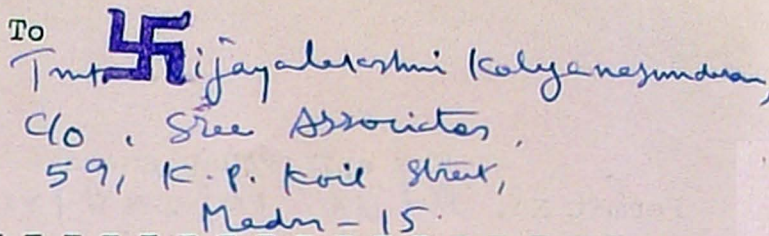 To
Tmt. Vijayalakshmi Kalyanasundaram,
C/o. Sree Associates,
59, K.P. Koil Street,
Madras - 15.